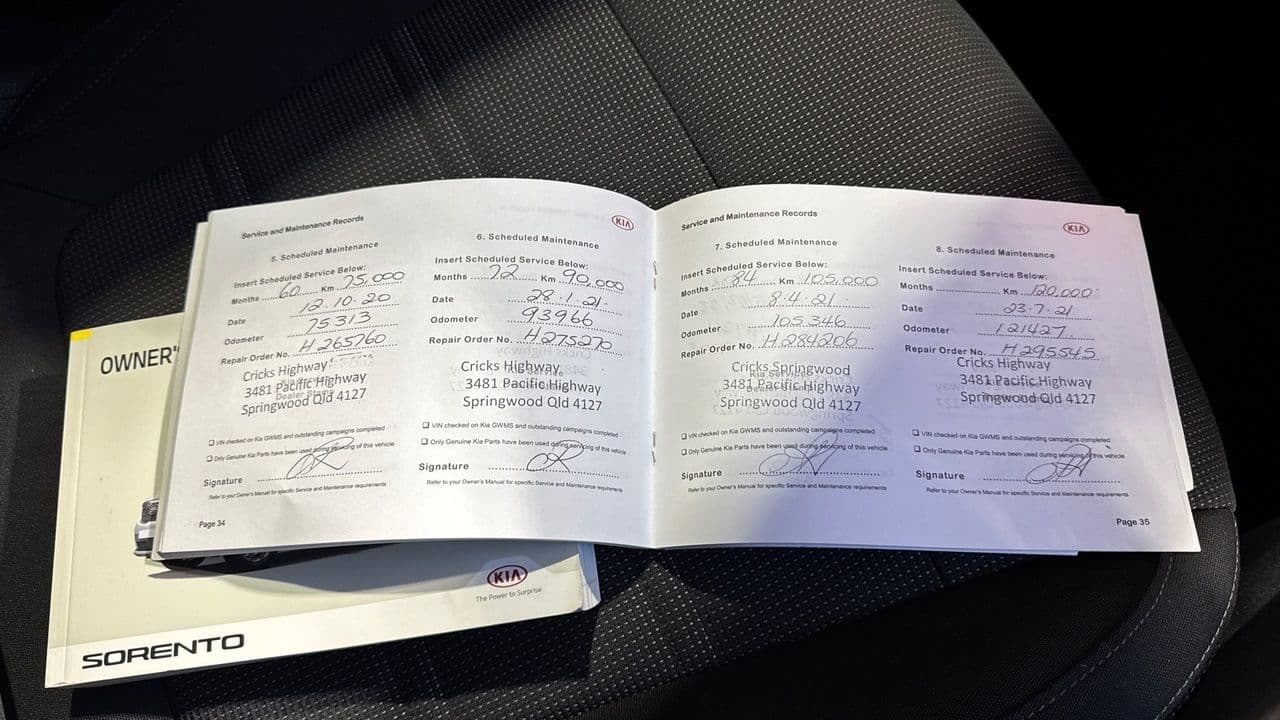 Service and Maintenance Records
KIA
5. Scheduled Maintenance
Insert Scheduled Service Below:
Months 60 Km 75,000
Date 12.10.20
Odometer 75313
Repair Order No. H265760
Cricks Highway
3481 Pacific Highway
Springwood Qld 4127
VIN checked on Kia GWMS and outstanding campaigns completed
Only Genuine Kia Parts have been used during servicing of this vehicle
Signature
Refer to your Owner's Manual for specific Service and Maintenance requirements
Page 34
6. Scheduled Maintenance
Insert Scheduled Service Below:
Months 72 Km 90,000
Date 28.1.21
Odometer 93966
Repair Order No. H275270
Cricks Highway
3481 Pacific Highway
Springwood Qld 4127
VIN checked on Kia GWMS and outstanding campaigns completed
Only Genuine Kia Parts have been used during servicing of this vehicle
Signature
Refer to your Owner's Manual for specific Service and Maintenance requirements
Service and Maintenance Records
KIA
7. Scheduled Maintenance
Insert Scheduled Service Below:
Months 84 Km 105,000
Date 8.4.21
Odometer 105346
Repair Order No. H284206
Cricks Springwood
3481 Pacific Highway
Springwood Qld 4127
VIN checked on Kia GWMS and outstanding campaigns completed
Only Genuine Kia Parts have been used during servicing of this vehicle
Signature
Refer to your Owner's Manual for specific Service and Maintenance requirements
8. Scheduled Maintenance
Insert Scheduled Service Below:
Months Km 120,000
Date 23.7.21
Odometer 121427
Repair Order No. H295545
Cricks Highway
3481 Pacific Highway
Springwood Qld 4127
VIN checked on Kia GWMS and outstanding campaigns completed
Only Genuine Kia Parts have been used during servicing of this vehicle
Signature
Refer to your Owner's Manual for specific Service and Maintenance requirements
Page 35
OWNER'
KIA
The Power to Surprise
SORENTO